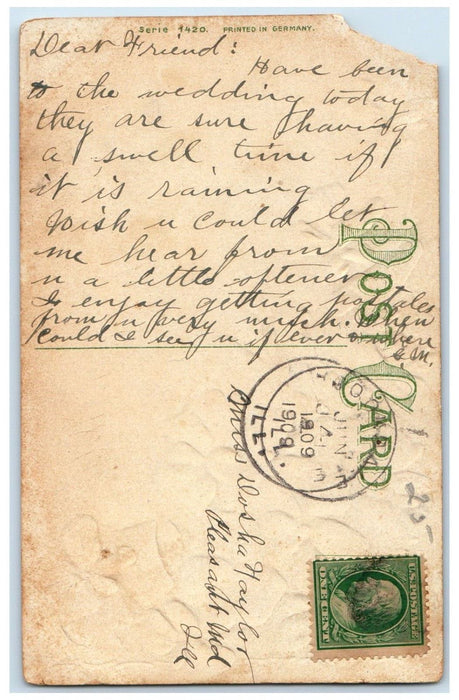 Serie 1420. PRINTED IN GERMANY.
Dear Friend:
Have been
to the wedding today
they are sure having
a swell time if
it is raining
Wish u could let
me hear from
u a little oftener
I enjoy getting postales
from u very much. When
could I see u if ever
G.M.
POST CARD
ILL.
JUN
1909
Miss Dosha Taylor
Pleasant Md
Ill
25-
U.S. POSTAGE
ONE CENT